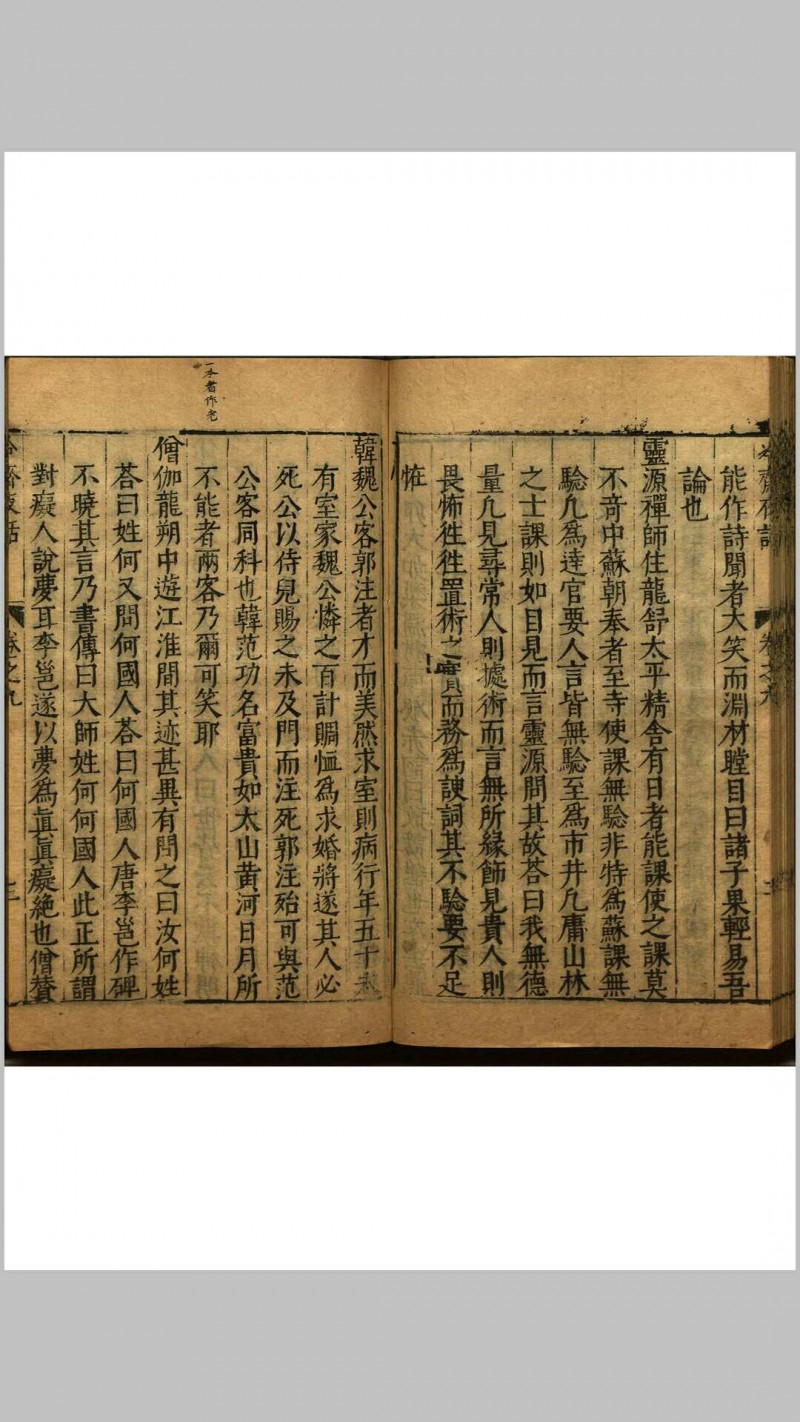 冷齋夜話
卷之九
能作詩聞者大笑而淵材瞠目曰諸子果輕易吾
論也
靈源禪師住龍舒太平精舍有日者能課使之課莫
不奇中蘇朝奉者至寺使課無驗非特為蘇課無
驗凢為達官要人言皆無驗至為市井凢庸山林
之士課則如目見而言靈源問其故荅曰我無德
量凢見尋常人則據術而言無所緣飾見貴人則
畏怖徃徃置術之實而務為諛詞其不驗要不足
恠
韓魏公客郭注者才而美然求室則病行年五十未
有室家魏公憐之百計賙恤為求婚將遂其人必
死公以侍兒賜之未及門而注死郭注殆可與范
公客同科也韓范功名富貴如太山黃河日月所
不能者兩客乃爾可笑耶
一本者作宅
僧伽龍朔中遊江淮間其迹甚異有問之曰汝何姓
荅曰姓何又問何國人荅曰何國人唐李邕作碑
不曉其言乃書傳曰大師姓何何國人此正所謂
對癡人說夢耳李邕遂以夢為眞眞癡絶也僧贊
冷齋夜話
卷之九